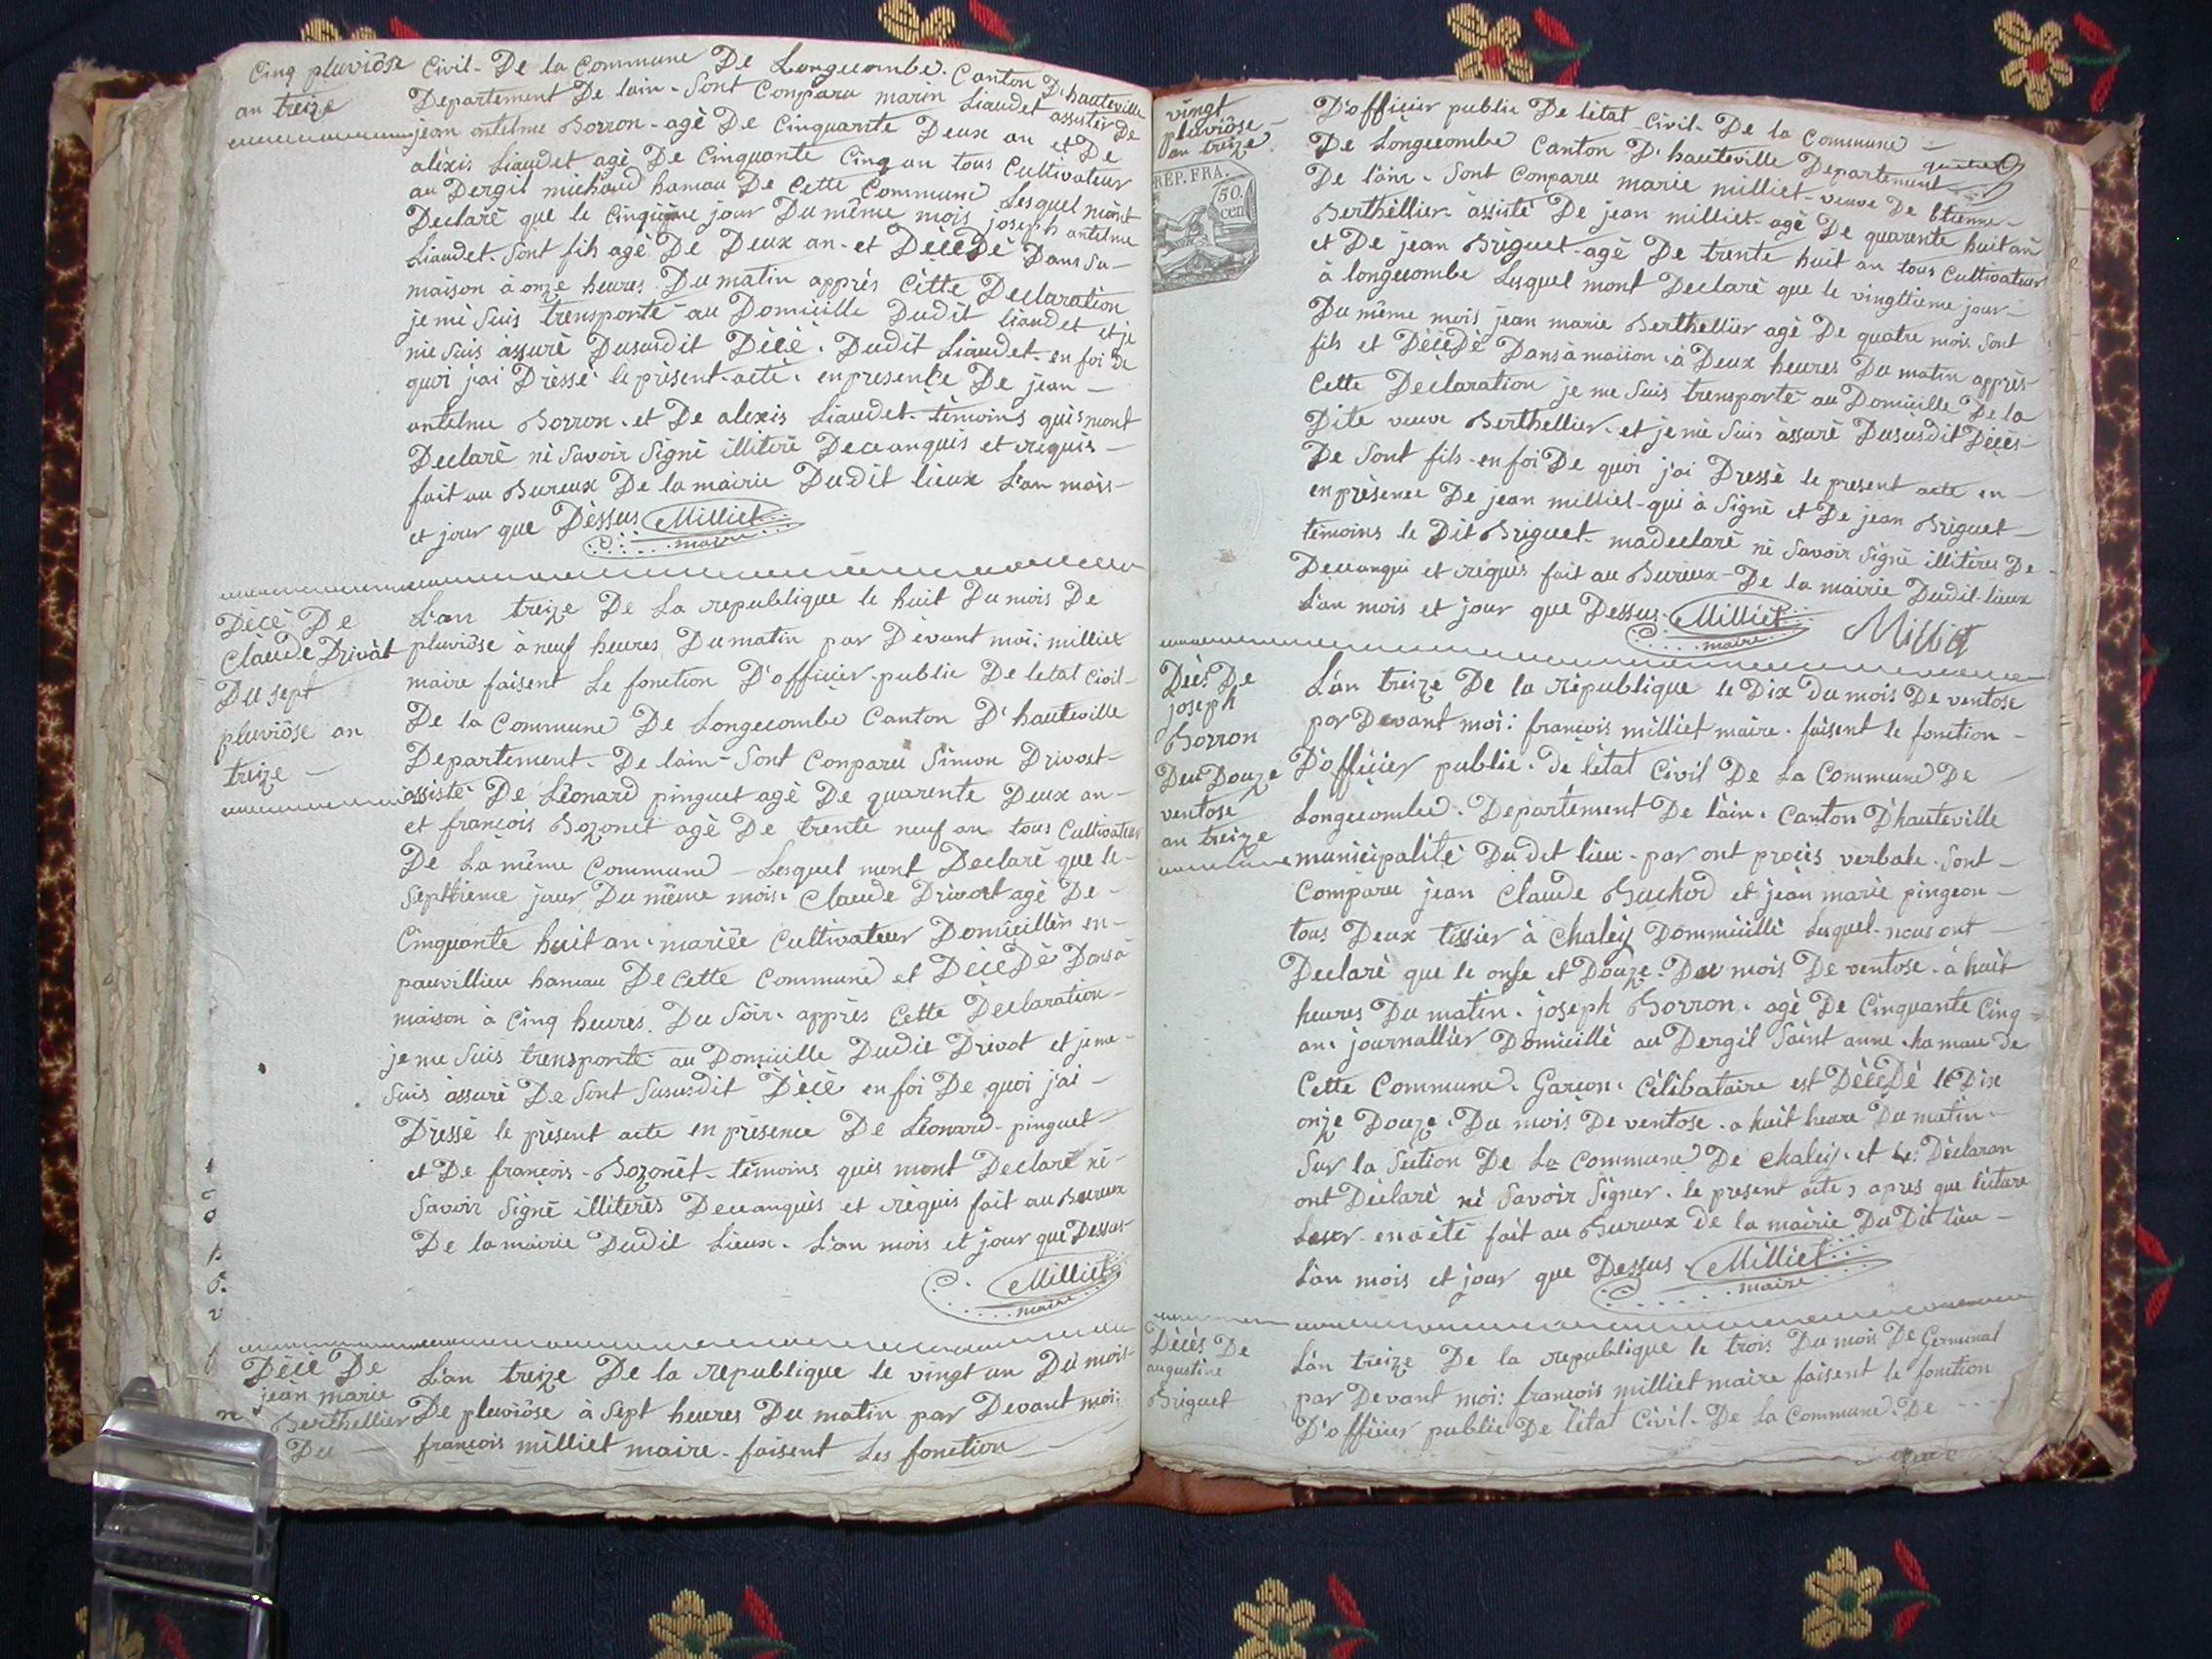 Cinq pluviôse
an treize
Civil - De la Commune De Longecombe. Canton D'hauteville
Departement De lain - Sont Comparu marin Liaudet assister De
jean antelme Borron - agè De Cinquante Deux an et De
alèxis Liaudet agè De Cinquante Cinq an tous Cultivateur
au Dergit michaud hamau De Cette Commune Lesquel mònt
Declarè que le Cinquième jour Du même mois joseph antelme
Liaudet. Sont fils agè De Deux an - et Dècedè Dans sa -
maison à onze heures Du matin apprès Cètte Declaration
je mè Suis trensportè au Domicille Dudit liaudet et je
mè suis àssurè Dususdit Dècè. Dudit Liaudet - en foi De
quoi j'ai Drèssè le prèsent - acte. en presence De jean -
antelme Borron. et De alexis Liaudet - tèmoins quis mont
Declarè nè Savoir Signè illiterè Deceanquis et requis -
fait au Bureux De la mairie Dudit lieux L'an mois -
et jour que Dèssus Milliet
maire
Dècè De
Claude Drivàt
Du sept
pluviôse an
treize -
L'an treize De La republique le huit Du mois De
pluviôse à neuf heures Du matin par Devant moi: milliet
maire faisent Le fonction D'officier - public De letat Civil -
De la Commune De Longecombe Canton D'hauteville
Departement - De lain - Sont Comparu Simon Drivost -
assistè De Lèonard pinguet agè De quarente Deux an -
et françois Bozonet agè De trente neuf an tous Cultivateur
De La même Commune - Lesquel mont Declarè que le -
Septtieme jour Du même mois. Claude Drivort agè De -
Cinquante huit an. mariêe Cultivateur Domicillèr en -
pauvillieu hamau De Cette Commune et Dècedè Dans à
maison à Cinq heures. Du Sòir. apprès Cette Declaration -
je me Suis trensportè au Domicille Dudit Drivot et je me -
Suis àssurè De Sont Sususdit Dècè en foi De quoi j'ai -
Drèssè le prèsent acte en prèsence De Lèonard - pinguet -
et De françois - Bozonèt - tèmoins quis mont Declarè nè -
Savoir Signè illiterès Deceanquis et rèquis fait au Bureux
De la mairie Dudit Lieux. L'an mois et jour que Dessus -
Milliet
maire
Dècè De
jean marie
Berthellier
Du -
L'an treize De la republique le vingt an Du mois -
De pluviôse à Sept heures Du matin par Devant moi:
françois milliet maire - faisent Les fonction -
vingt
pluviôse -
an treize
REP. FRA.
50.
cen
D'officier public De lètat - Civil - De la Commune -
De Longecombe Canton D'hauteville Departement
De l'àin - Sont Comparu marie milliet - veuve De Etienne -
Berthèllier - àssistè De jean milliet - agè De quarente huit an
et De jean Briguet - agè De trente huit an tous Cultivateur
à longecombe Lesquel mont Declarè que le vingttieme jour -
Du même mois jean marie Berthellier agè De quatre mois Sont
fils et Dècèdè Dans à maison. à Deux heures Du matin apprès
Cette Declaration je me Suis trensportè au Domicille De la
Dite veuve Berthellier - et je mè Suis àssurè Dususdit Dècès -
De Sont fils - en foi De quoi j'ai Drèssè le present acte en -
en prèsence De jean milliet - qui à Signè et De jean Briguet -
tèmoins le Dit Briguet - ma declarè nè Savoir Signè illitères De
Deceanqui et requis fait au Bureux - De la mairie Dudit - lieux
L'an mois et jour que Dessus. Milliet
maire
Milliet
Dècès De
joseph
Borron
Deu Douze
ventose
an treize
L'àn treize De la rèpublique le Dix Du mois De ventose
por Devant moi: françois milliet maire. faisent le fonction -
D'officier public. de lètat Civil De La Commune De -
Longecombe. Departement De l'àin. Canton D'hauteville
municipalitè Du dit lieu - par ont procès verbale. Sont -
Comparu jean Claude Buchod et jean marie pingeon -
tous Deux tissier à Chaley Dommicillè Lesquel - nous ont -
Declarè que le onse et Douze. Du mois De ventose. à huit
heures Du matin. joseph Borron. agè De Cinquante Cinq -
an. journallièr Domicillè au Dergit Saint anne. hamau de
Cette Commune. Garcon. Cèlibataire est Dècèdè le Dix
onze Douze. Du mois De ventose. a huit heure Du matin. -
Sur la Section De La Commune De chaley. et les Dèclaran
ont Dèclarè nè Savoir Signer. le present acte, apres que lècture
Leur - en à ètè fait au Bureux de la mairie Du Dit lieu -
L'àn mois et jour que Dessus. Milliet
maire
Dècès De
augustine
Briguet
L'àn treize De la republique le trois Du mois De Germinal
par Devant moi: francois milliet maire faisent le fonction
D'officier public De lètat Civil - De La Commune. De - - -